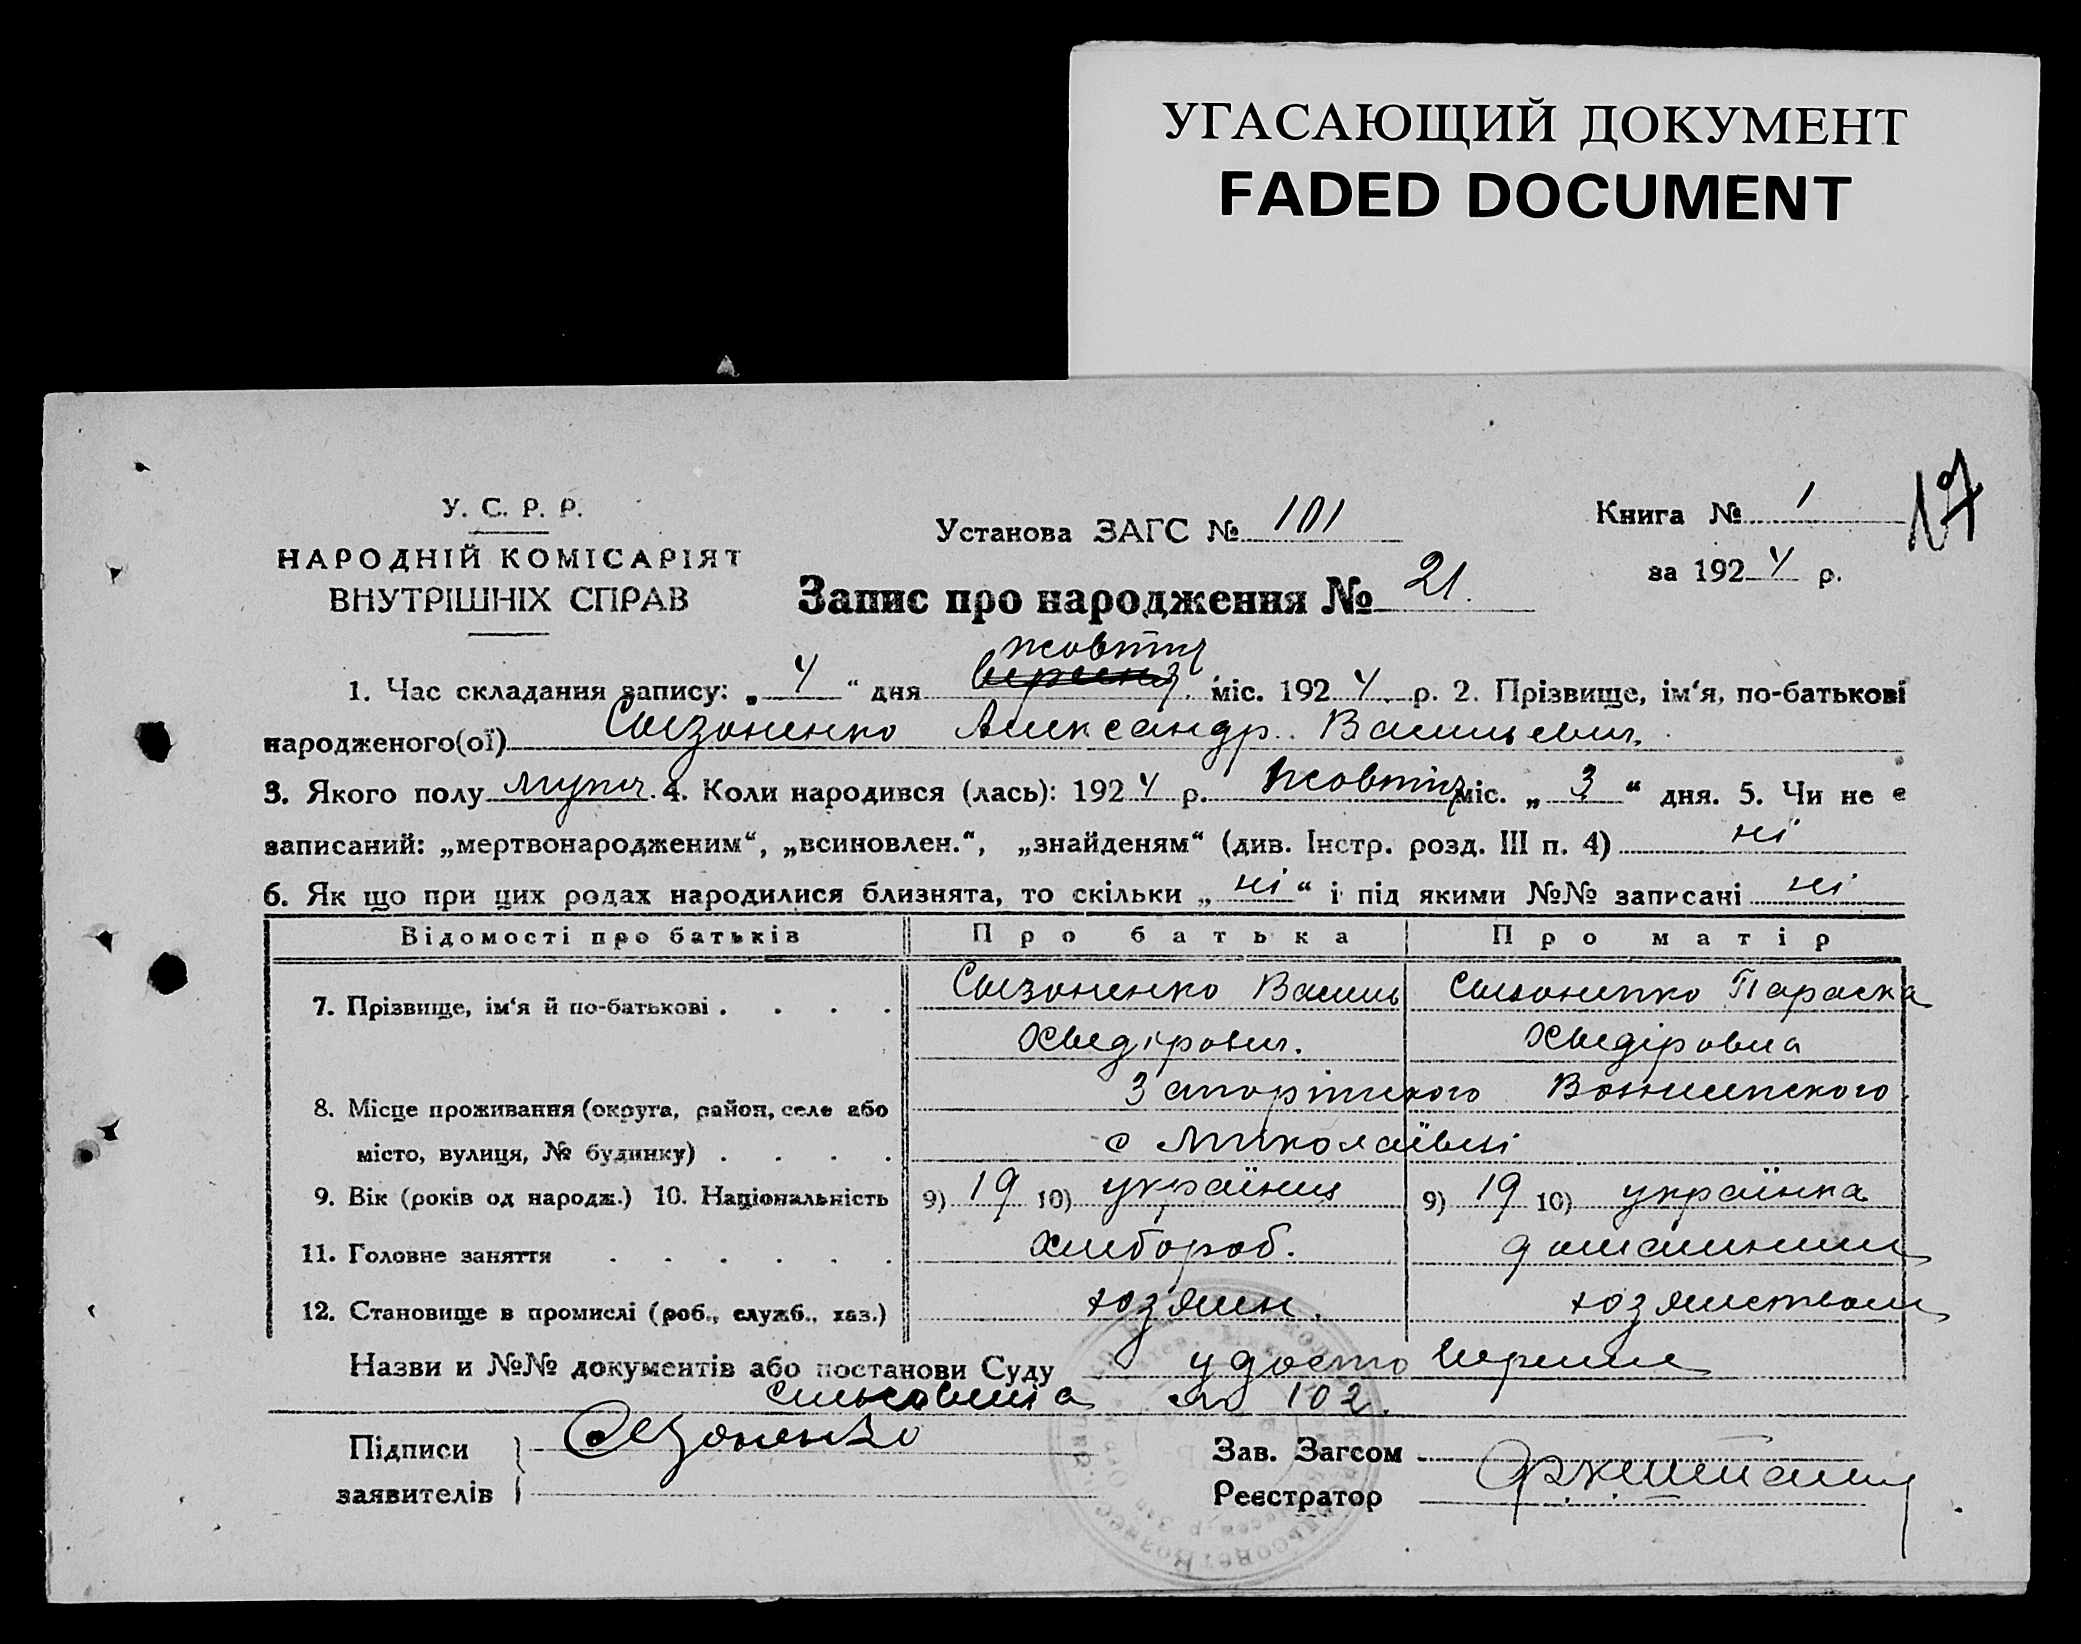 УГАСАЮЩИЙ ДОКУМЕНТ
FADED DOCUMENT
У. С. Р. Р.
НАРОДНІЙ КОМІСАРІЯТ
ВНУТРІШНІХ СПРАВ
Установа ЗАГС № 101
Запис про народження № 21.
Книга № 1
за 1924 р.
17
жовтня
1. Час складання запису: „ 4 “ дня вересня міс. 1924 р. 2. Прізвище, ім‘я, по-батькові
народженого(ої) Сизоненко Александр Васильевич.
3. Якого полу мужч. 4. Коли народився (лась): 1924 р. Жовтня міс. „ 3 “ дня. 5. Чи не є
записаний: „мертвонародженим“, „всиновлен.“, „знайденям“ (див. Інстр. розд. III п. 4) ні
6. Як що при цих родах народилися близнята, то скільки „ ні “ і під якими №№ записані ні
Відомості про батьків Про батька Про матір
7. Прізвище, ім‘я й по-батькові . . . . Сизоненко Василь Сизоненко Параска
Хведірович. Хведіровна
8. Місце проживання (округа, район, село або Запорізького
місто, вулиця, № будинку) . . . . с Миколаївці
9. Вік (років од народж.) 10. Національність 9) 19 10) українець 9) 19 10) українка
11. Головне заняття . . . . . . Хлібороб. домашним
12. Становище в промислі (роб., служб., хаз.) хозяин. хозяиством
Назви и №№ документів або постанови Суду удостоверение
сильсовита № 102.
Підписи Сизоненко Зав. Загсом
заявителів Реєстратор